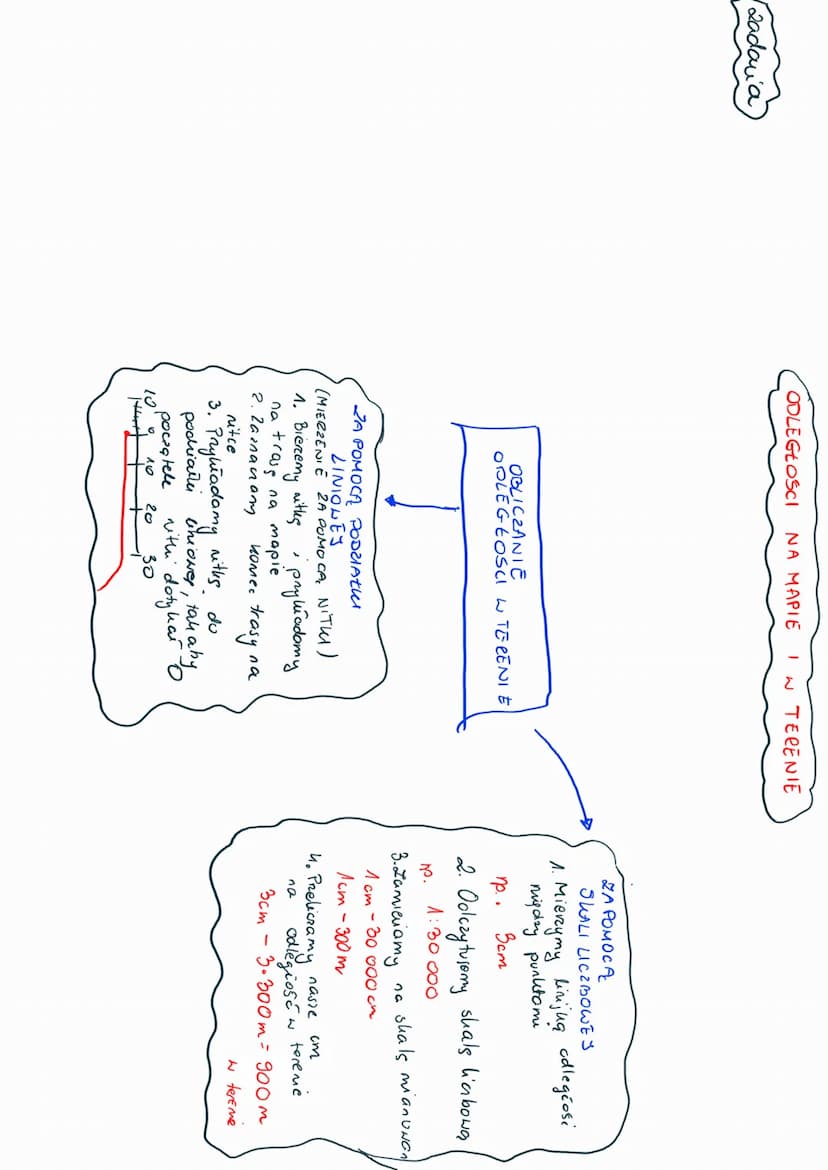 ODLEGŁOŚCI NA MAPIE I W TERENIE
Zadania
OBLICZANIE
ODLEGŁOŚCI W TERENIE
ZA POMOCĄ PODZIAŁKI
LINIOWEJ
(MIERZENIE ZA POMOCĄ NITKI)
1. Bierzemy nitkę i przykładamy
na trasę na mapie
2. Zaznaczamy koniec trasy na
nitce
3. Przykładamy nitkę do
podziałki liniowej, tak aby
początek nitki dotykał 0
10 0 10 20 30
ZA POMOCĄ
SKALI LICZBOWEJ
1. Mierzymy linijką odległość
między punktami
np. 3cm
2. Odczytujemy skalę liczbową
np. 1:30 000
3. Zamieniamy na skalę mianowan
1 cm - 30 000 cm
1cm - 300 m
4. Przeliczamy nasze cm
na odległość w terenie
3cm - 3·300m = 900m
w terenie